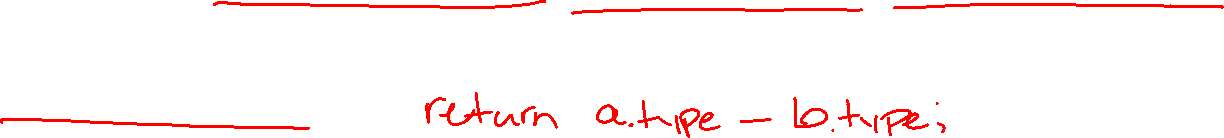 return a.type - b.type;